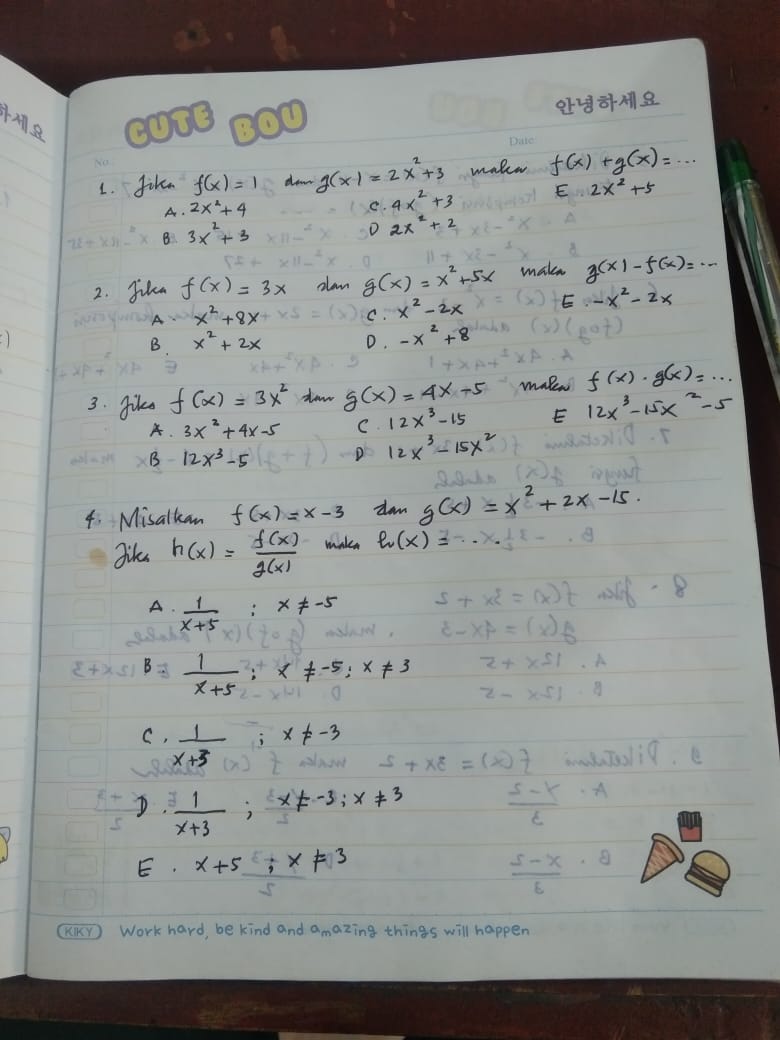 하세요
CUTE BOU
안녕하세요
No.
Date
1. Jika f(x) = 1 dan g(x) = 2x²+3 maka f(x) + g(x) = ...
A. 2x²+4 C. 4x²+3 E. 2x²+5
B. 3x²+3 D 2x²+2
2. Jika f(x) = 3x dan g(x) = x²+5x maka g(x) - f(x) = ...
A. x²+8x C. x²-2x E. -x²-2x
B. x²+2x D. -x²+8
3. Jika f(x) = 3x² dan g(x) = 4x-5 maka f(x) . g(x) = ...
A. 3x²+4x-5 C. 12x³-15 E 12x³-15x²-5
B 12x³-5 D 12x³-15x²
4. Misalkan f(x) = x-3 dan g(x) = x²+2x-15.
Jika h(x) = f(x)/g(x) maka h(x) = ....
A. 1/x+5 ; x ≠ -5
B. 1/x+5 ; x ≠ -5; x ≠ 3
C. 1/x+3 ; x ≠ -3
D. 1/x+3 ; x ≠ -3; x ≠ 3
E. x+5 ; x ≠ 3
KIKY Work hard, be kind and amazing things will happen